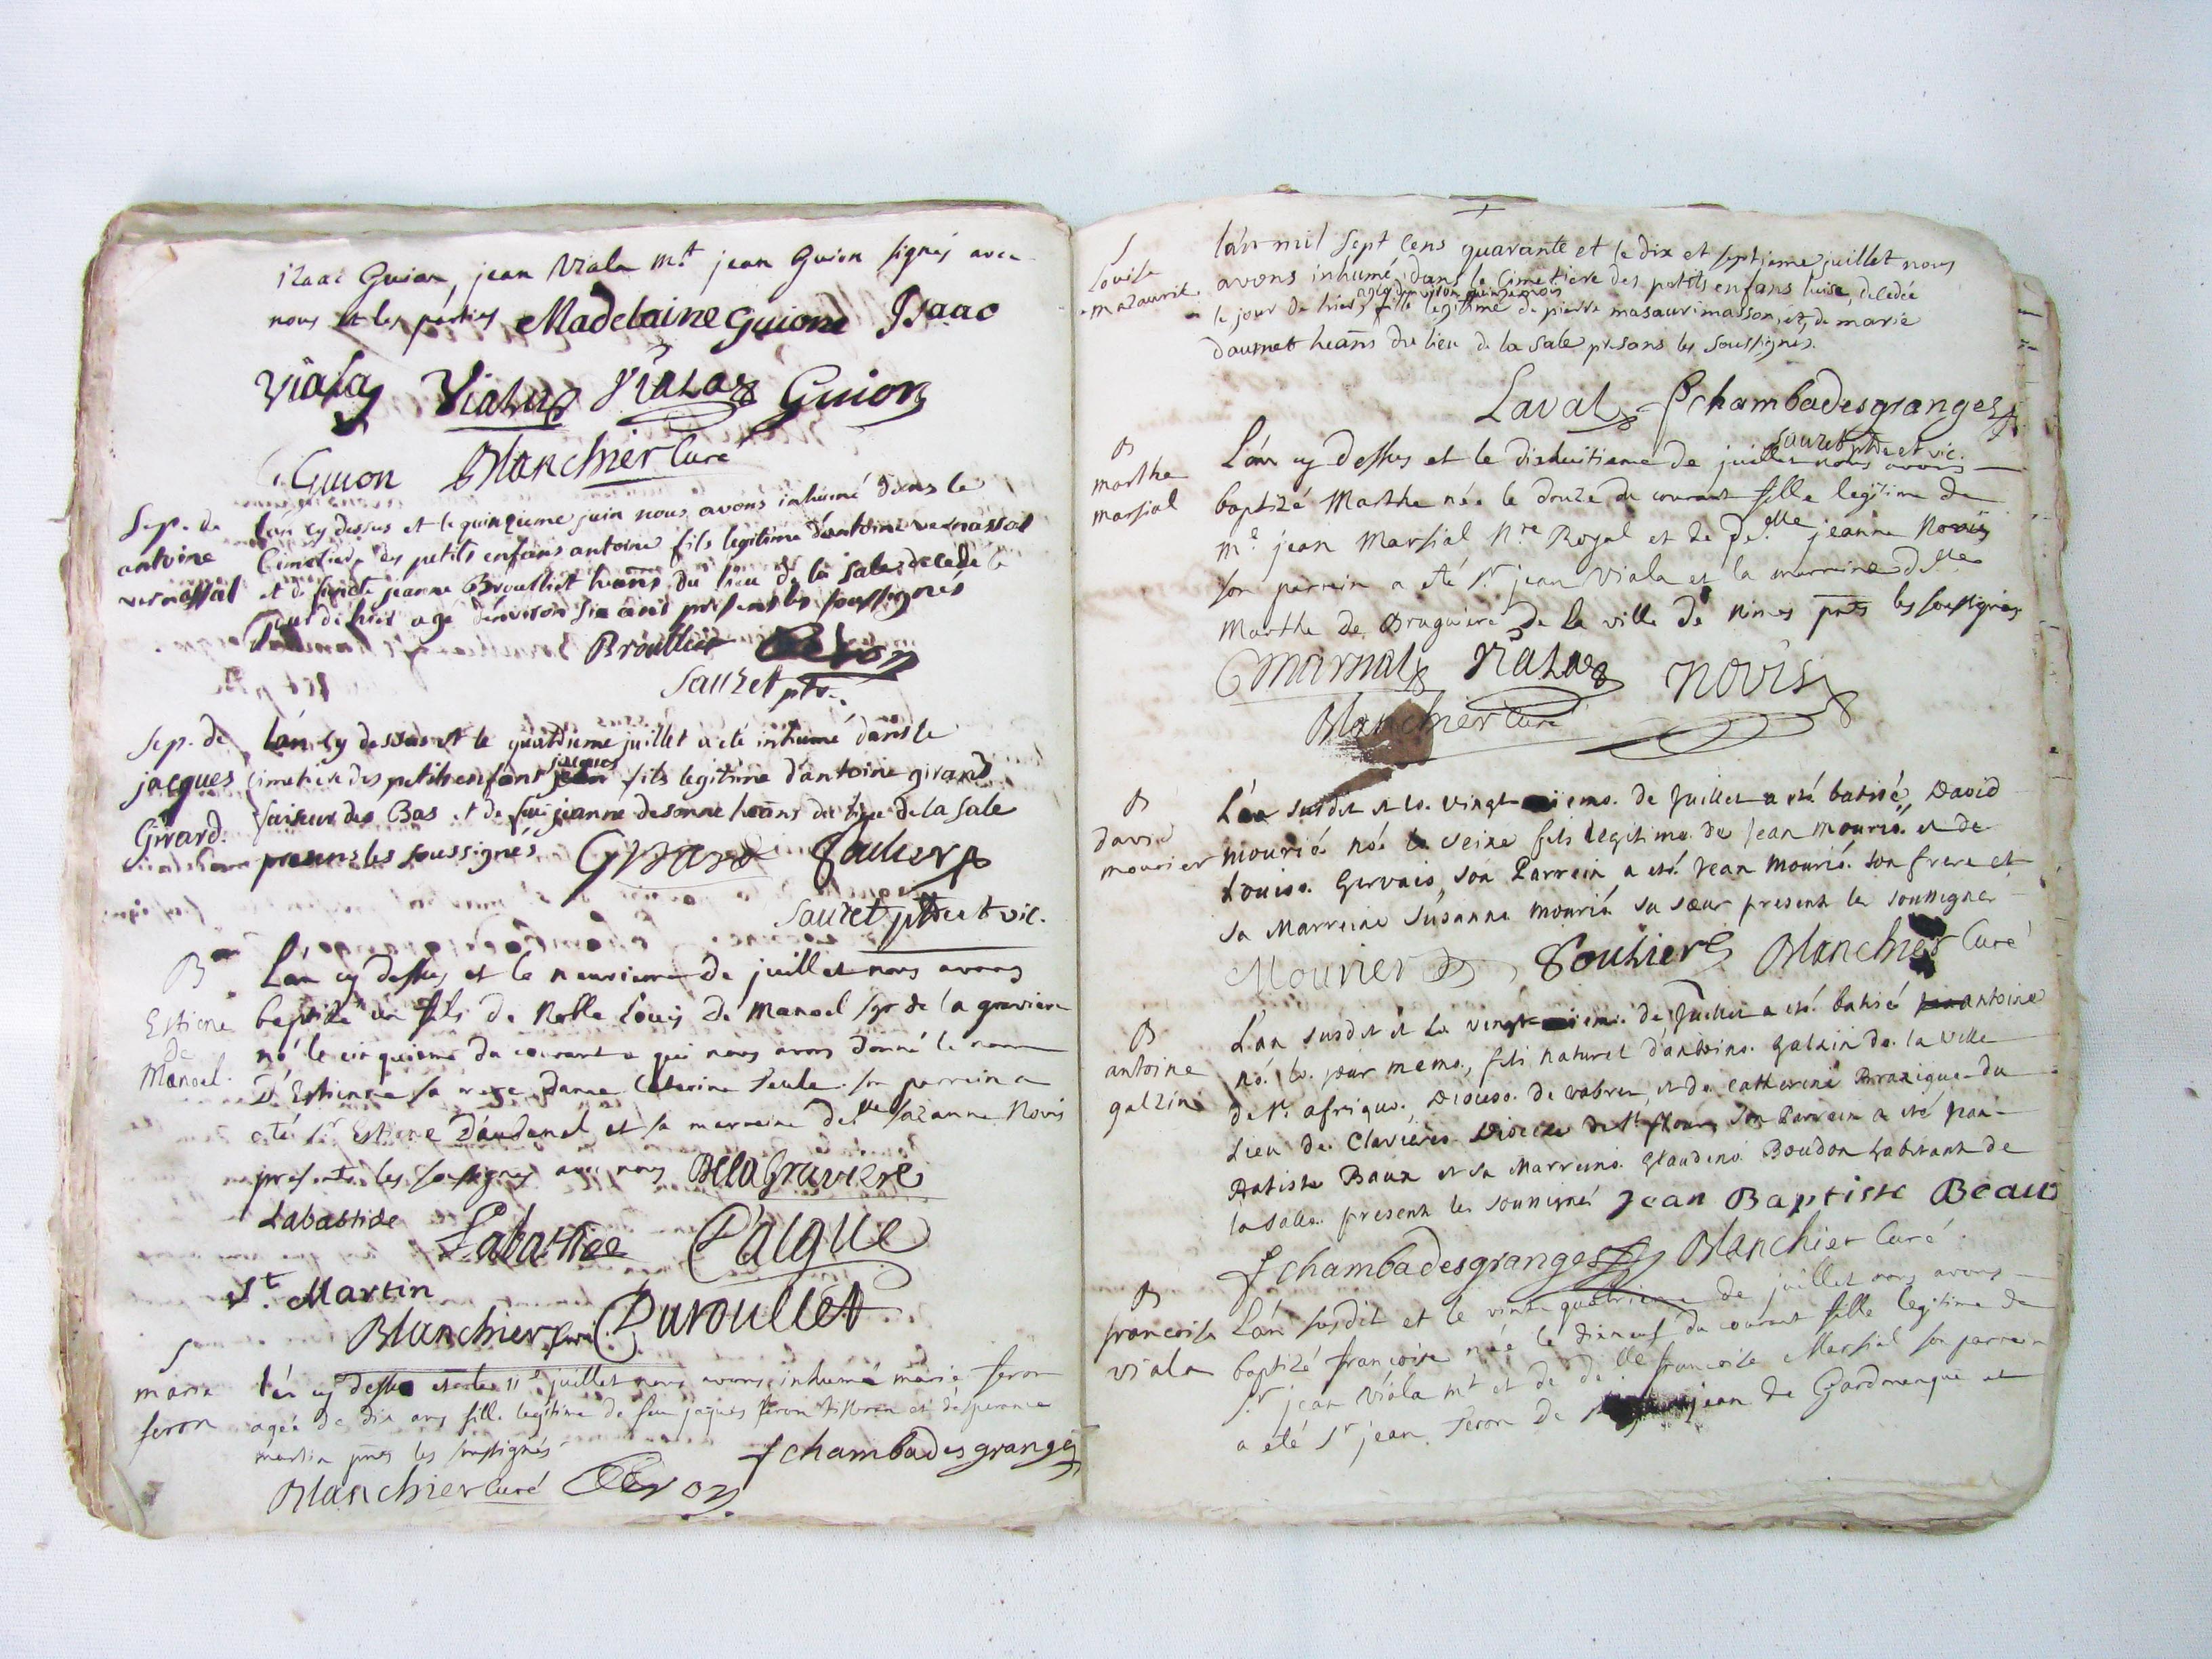 Izaac Guion, jean Viala m.t jean Guion signés avec
nous et les parties Madelaine Guione Isaac
Viala Viala Viala Guion
Guion Blanchier Curé
Sep. de
antoine
vernassal
lan cy dessus et le quinzieme juin nous avons inhumé dans le
Cimetiere des petits enfans antoine fils legitime d'antoine vernassal
et de jeanne Brouilhet du lieu de la sale decedé le
jour d'hier agé d'environ six ans présens les soussignés
Brouilhet
Sauzet ptre.
Sep. de
jacques
Girard.
lán cy dessus et le juillet a eté inhumé dans le
Cimetiere des petits enfans jacques fils legitime d'antoine girard
faiseur des Bas et de jeanne du lieu de la sale
presens les soussignés Girard
Sauzet ptre et vic.
B
Estiene
de
Manoel.
Lán cy dessus et le neuvieme de juillet nous avons
baptizé un fils de Noble Louis de Manoel sgr de la graviere
né le cinquieme du courant a qui nous avons donné le nom
D'Estienne sa mere dame Caterine son parrain a
eté sr Estiene et sa marreine delle suzanne Novis
presents les soussignes avec nous Delagraviere
Labastide Labastide Dalgue
St. Martin
Blanchier curé Duroullet
S
marie
feron
lán cy dessus et le 11e juillet nous avons inhumé marie feron
agée de dix ans fille legitime de feu jaques feron et
martin pnts les soussignés fchambadesgranges
Blanchier Curé Feron
S
Louise
mazaurit
lán mil sept cens quarante et le dix et septieme juillet nous
avons inhumé dans le Cimetiere des petits enfans luise, decedée
agée d'environ quinze mois
le jour de hier, fille legitime de pierre masauri masson, et de marie
daumet du lieu de la sale presans les soussignés.
Laval fchambadesgranges
Sauzet ptre et vic.
B
marthe
marsial
Lán cy dessus et le dixhuitieme de juillet nous avons
baptizé Marthe née le douze du courant fille legitime de
me jean Marsial Nre Royal et de delle jeanne Novis
son parrein a eté sr jean Viala et la marreine delle
Marthe de Bruguiere de la ville de nimes pnts les soussignés
Viala NOVIS
Blanchier Curé
B
david
mourier
Lán susdit et le vingt de Juillet a eté batisé David
mourié né le seize fils legitime de Jean mourié et de
Louise Gervais, son Parrein a eté Jean mourié son frere et
sa Marreine susanne mourié sa sœur present les soussignes
Mourier Soulier Blanchier Curé
B
antoine
galzin
Lán susdit et le vingt de Juillet a eté batisé antoine
né le jour meme, fils naturel d'antoine Galzin de la ville
de St. afrique. Diocese de vabres, et de catherine du
Lieu de Clavières Diocese de St flour, son Parrein a eté jean
Batiste Baux et sa Marreine Boudon habitant de
la salle present les soussignés Jean Baptiste Beau
fchambadesgranges Blanchier Curé
B
francoise
viala
Lán susdit et le vint quatrieme de juillet nous avons
baptizé françoise née le dixneuf du courant fille legitime de
sr jean viala mt et de delle francoise Marsial son parrein
a eté sr jean feron de jean de Gardonenque et